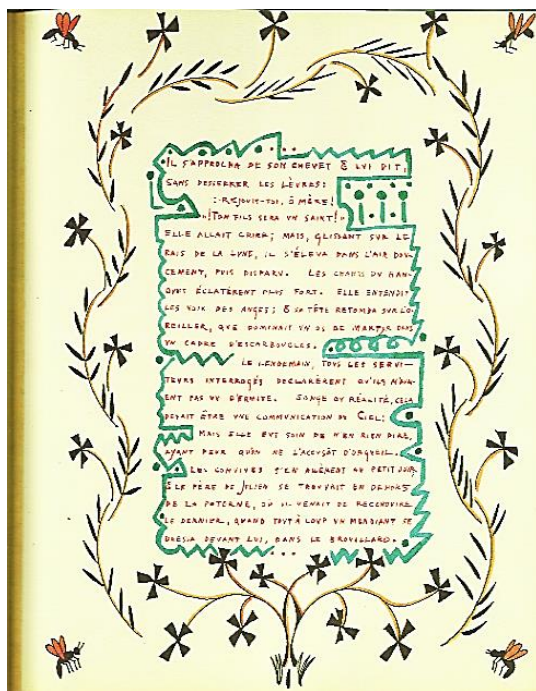 IL S'APPROCHA DE SON CHEVET & LUI DIT,
SANS DESSERRER LES LÈVRES:
:-REJOUIS-TOI, Ô MÈRE!
»!TON FILS SERA UN SAINT!»
ELLE ALLAIT CRIER; MAIS, GLISSANT SUR LE
RAIS DE LA LUNE, IL S'ÉLEVA DANS L'AIR DOU-
CEMENT, PUIS DISPARU. LES CHANTS DU BAN-
QUET ÉCLATÈRENT PLUS FORT. ELLE ENTENDIT
LES VOIX DES ANGES; & SA TÊTE RETOMBA SUR L'O-
REILLER, QUE DOMINAIT UN OS DE MARTYR DANS
UN CADRE D'ESCARBOUCLES.
LE LENDEMAIN, TOUS LES SERVI-
TEURS INTERROGÉS DECLARÈRENT QU'ILS N'AVAI-
ENT PAS VU D'ERMITE. SONGE OU RÉALITÉ, CELA
DEVAIT ÊTRE UNE COMMUNICATION DU CIEL;
MAIS ELLE EUT SOIN DE N'EN RIEN DIRE,
AYANT PEUR QU'ON NE L'ACCUSÂT D'ORGUEIL.
LES CONVIVES S'EN ALLÈRENT AU PETIT JOUR
& LE PÈRE DE JULIEN SE TROUVAIT EN DEHORS
DE LA POTERNE, OÙ IL VENAIT DE RECONDUIRE
LE DERNIER, QUAND TOUT À COUP UN MENDIANT SE
DRESSA DEVANT LUI, DANS LE BROUILLARD.